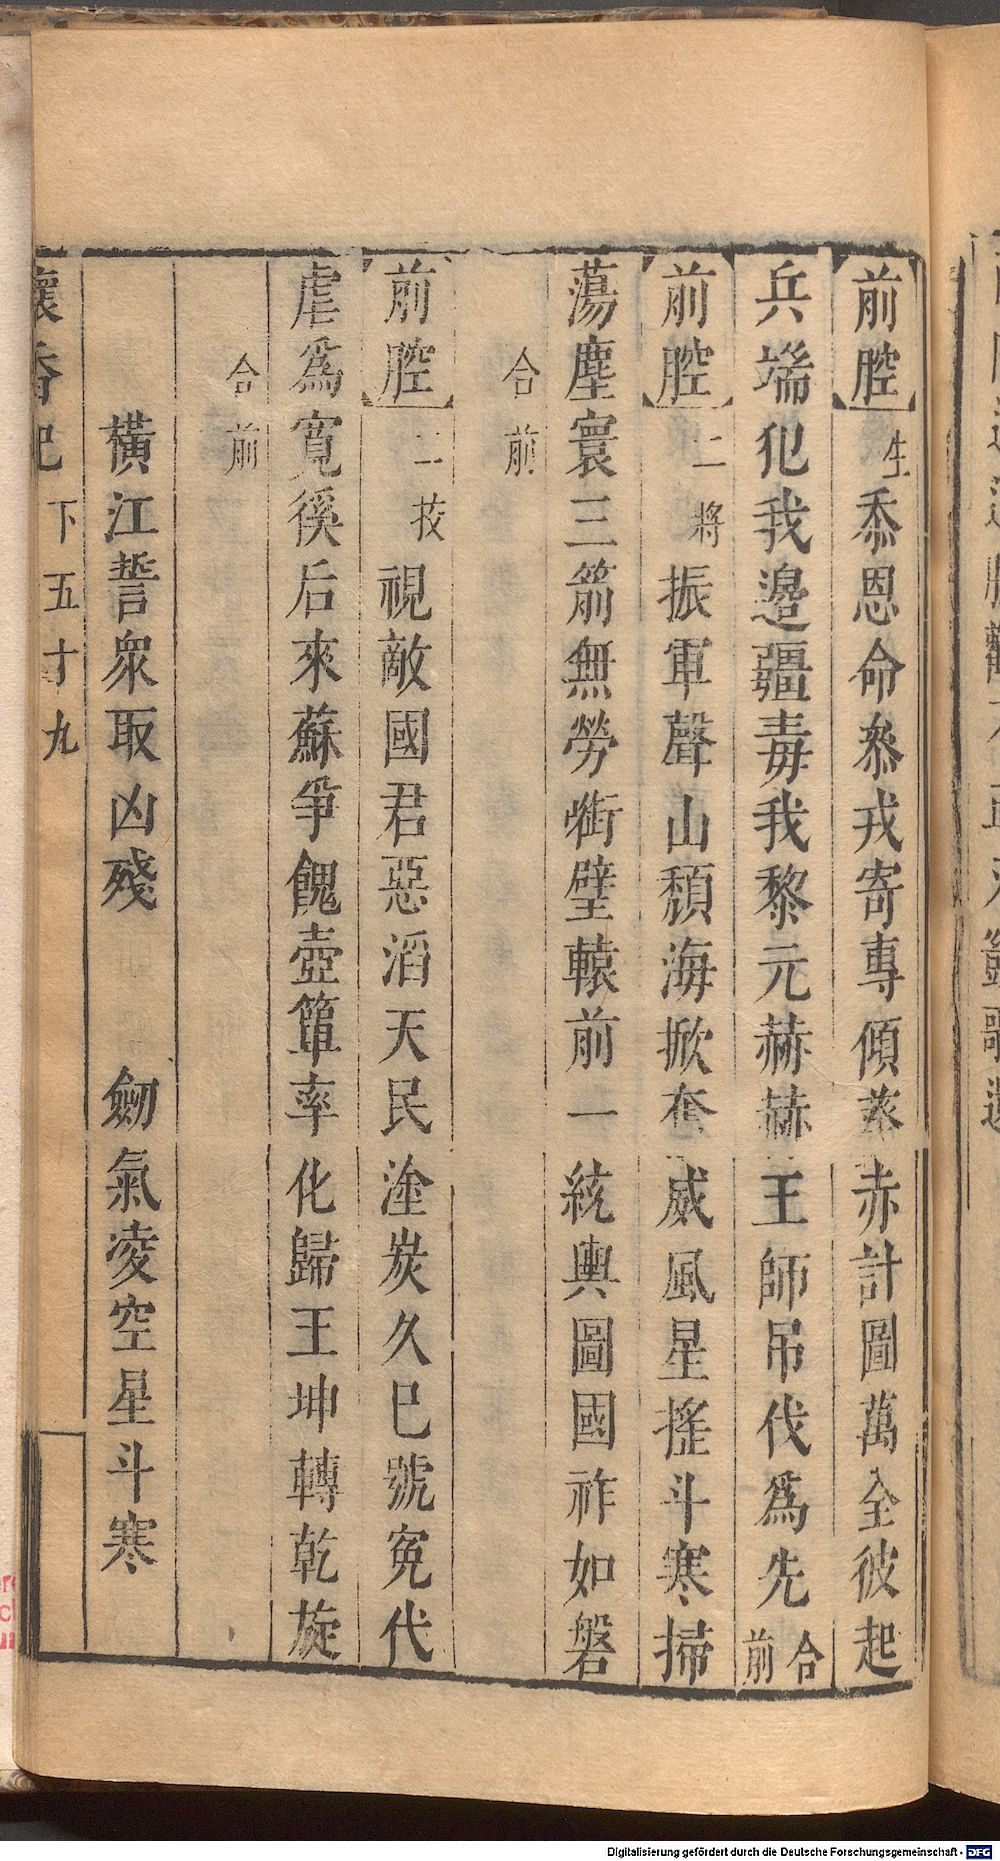 前腔生忝恩命叅戎寄專傾葵赤計圖萬全彼起
兵端犯我邊疆毒我黎元赫赫王師吊伐爲先合前
前腔二將振軍聲山頹海掀奮威風星搖斗寒掃
蕩塵寰三箭無勞銜璧轅前一統輿圖國祚如磐
合前
前腔二技視敵國君惡滔天民塗炭久巳號寃代
虐爲寬徯后來蘇爭餽壺簞率化歸王坤轉乾旋
合前
橫江誓衆取凶殘 劒氣凌空星斗寒
懷香記 下 五十九
Digitalisierung gefördert durch die Deutsche Forschungsgemeinschaft - DFG